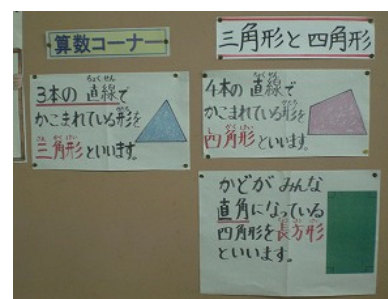 算数コーナー
三角形と四角形
3本の直線で
かこまれている形を
三角形といいます。
4本の直線で
かこまれている形を
四角形といいます。
かどがみんな
直角になっている
四角形を長方形
といいます。